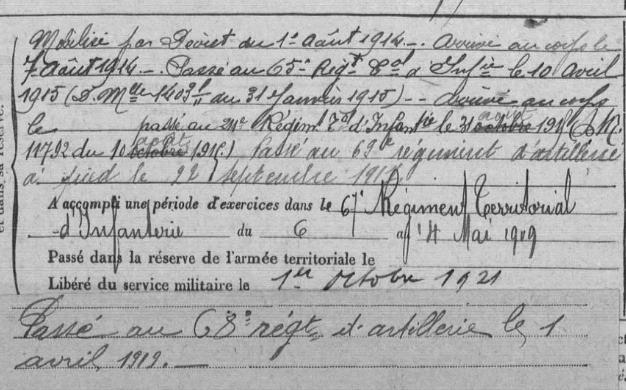 Mobilisé par Décret du 1er Août 1914 -. Arrivé au corps le
7 Août 1914 -. Passé au 65e Regt Tal d'Infie le 10 Avril
1915 (D. Mlle 1409 du 31 Janvier 1915) -- Arrivé au corps
le passé au 24e Régimt Tal d'Infanterie le 31 août octobre 191
11792 du 10 août octobre 191 ) Passé au 69e régiment d'artillerie
à pied le 22 septembre 191
A accompli une période d'exercices dans le 67e Régiment Territorial
d'Infanterie du 6 au 14 Mai 1909
Passé dans la réserve de l'armée territoriale le
Libéré du service militaire le 1er Octobre 1921
Passé au 68e régt d'artillerie le 1
avril 1919. -
et dans sa réserve.